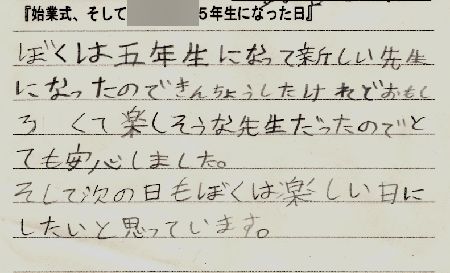 『始業式、そして５年生になった日』
ぼくは五年生になって新しい先生
になったのできんちょうしたけれどおもし
ろくて楽しそうな先生だったのでと
ても安心しました。
そして次の日もぼくは楽しい日に
したいと思っています。